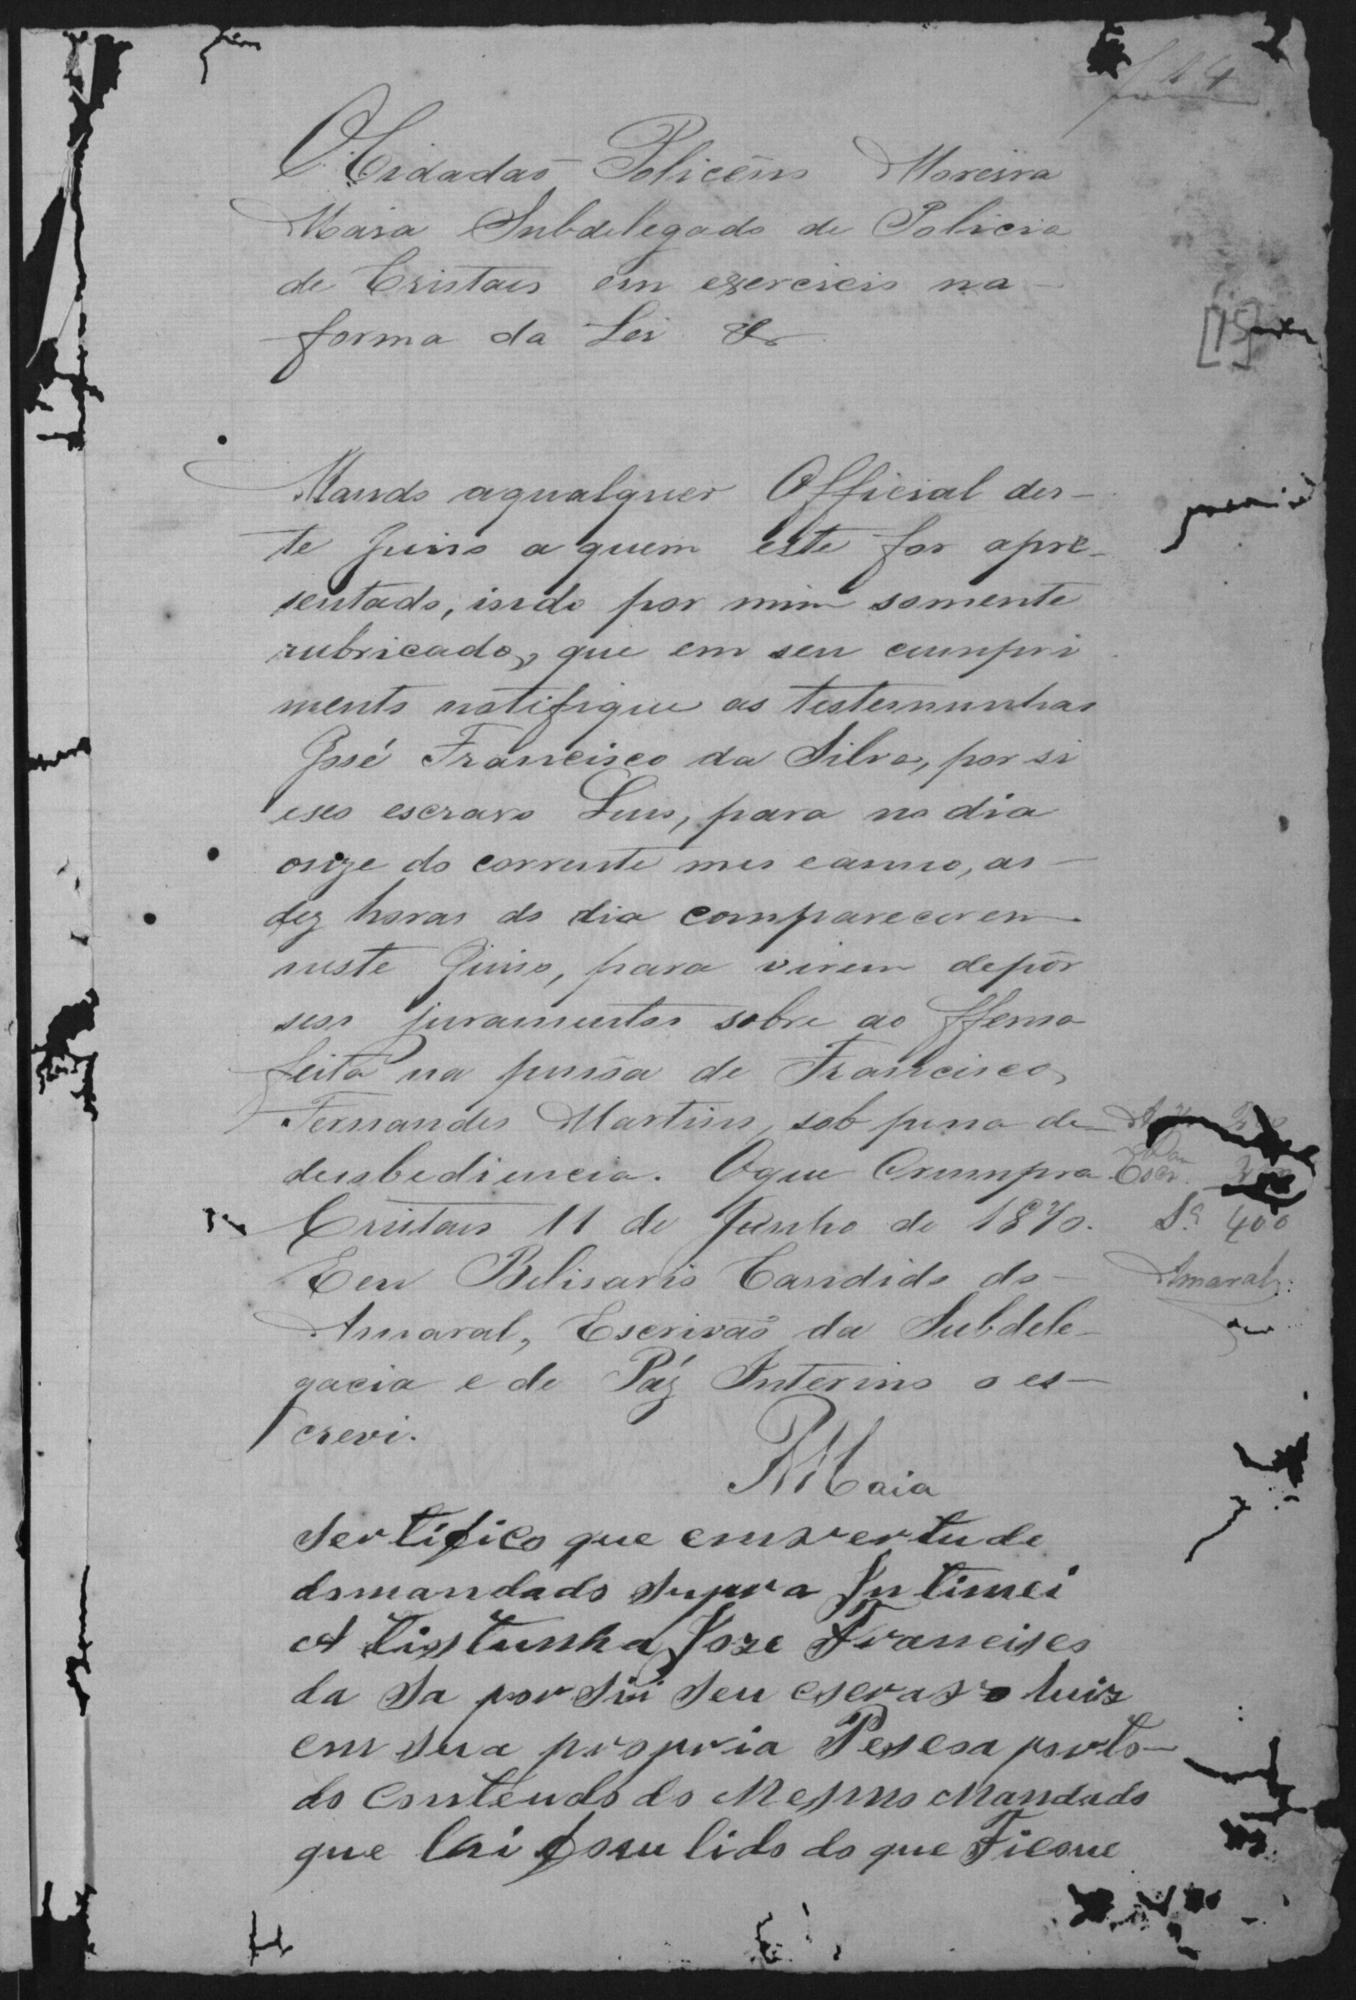 f 14
O Cidadaõ Policeno Moreira
Maia Subdelegado de Policia
de Cristaes em exercicio na
forma da Lei &
[15]
Mando aqualquer Official des-
te Juiso a quem este for apre-
sentado, indo por mim somente
rubricado, que em seu cumpri
mento notifique as testemunhas
José Francisco da Silva, por si
eseo escravo Luis, para no dia
onze do corrente mes eanno, as
dez horas do dia comparecerem
neste Juiso, para virem depôr
seos juramentos sobre ao ffensa
feita na pessôa de Francisco
Fernandes Martins, sob pena de
desobediencia. Oque Cumpra
Cristaes 11 de Junho de 1870.
Eeu Belisario Candido do
Amaral, Escrivaõ da Subdele-
gacia e de Páz Interino o es-
crevi.
Sª 400
Amaral
PMMaia
Sertifico que emvertude
domandado Supra Intimei
A Tistunha Joze Francisco
da Sa por Sii Seu escravo Luiz
em Sua propria Pesesa porto-
do Conteudo do Mesmo Mandado
que lhi fou lido do que Ficoue